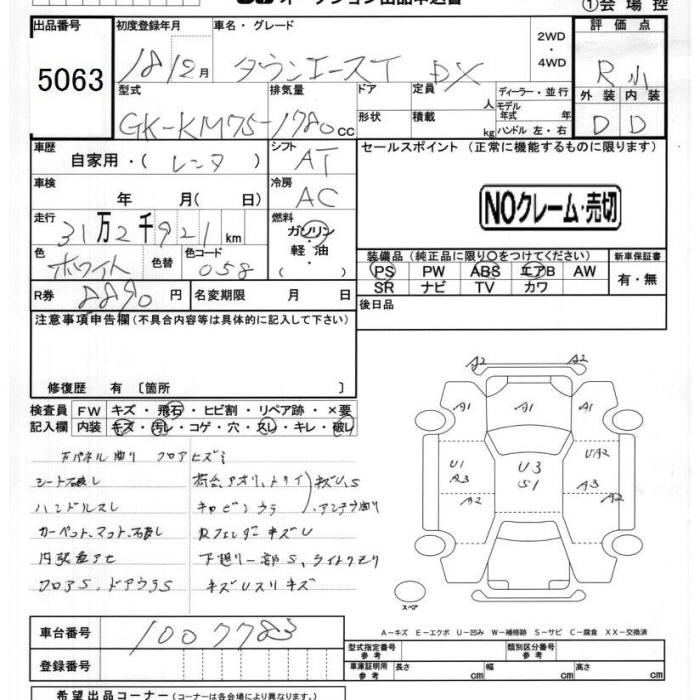 オークション出品申込書
①会場控
出品番号
5063
初度登録年月
18/2月
車名・グレード
タウンエースT DX
2WD
・
4WD
評価点
R
外装 内装
D D
型式
GK-KM75-
排気量
1780cc
ドア
定員
人
形状
積載
kg
ディーラー・並行
モデル年式 年
ハンドル 左・右
車歴
自家用・( レンタ )
シフト
AT
車検
年 月( 日)
冷房
AC
走行
31万2千921km
燃料
ガソリン
・
軽油
・( )
色
ホワイト
色替
色コード
058
R券
8890円
名変期限 月 日
セールスポイント(正常に機能するものに限ります)
NOクレーム・売切
装備品(純正品に限り○をつけてください)
PS PW ABS エアB AW
SR ナビ TV カワ
新車保証書
有・無
後日品
注意事項申告欄(不具合内容等は具体的に記入して下さい)
修復歴 有〔箇所 〕
検査員
記入欄
FW キズ・飛石・ヒビ割・リペア跡・×要
内装 キズ・汚レ・コゲ・穴・スレ・キレ・破レ
シート破レ
ハンドルスレ
フロアS、ドアウラS
キズUスリキズ
A2 A2
A1 A1 A1
U1 A3 A2
U3 S1
UA2 A3 A2
スペア
A-キズ E-エクボ U-凹み W-補修跡 S-サビ C-腐食 XX-交換済
車台番号
1007783
登録番号
型式指定番号
参考
類別区分番号
参考
車庫証明用
参考
長さ cm
幅 cm
高さ cm
希望出品コーナー(コーナーは各会場により異なります)